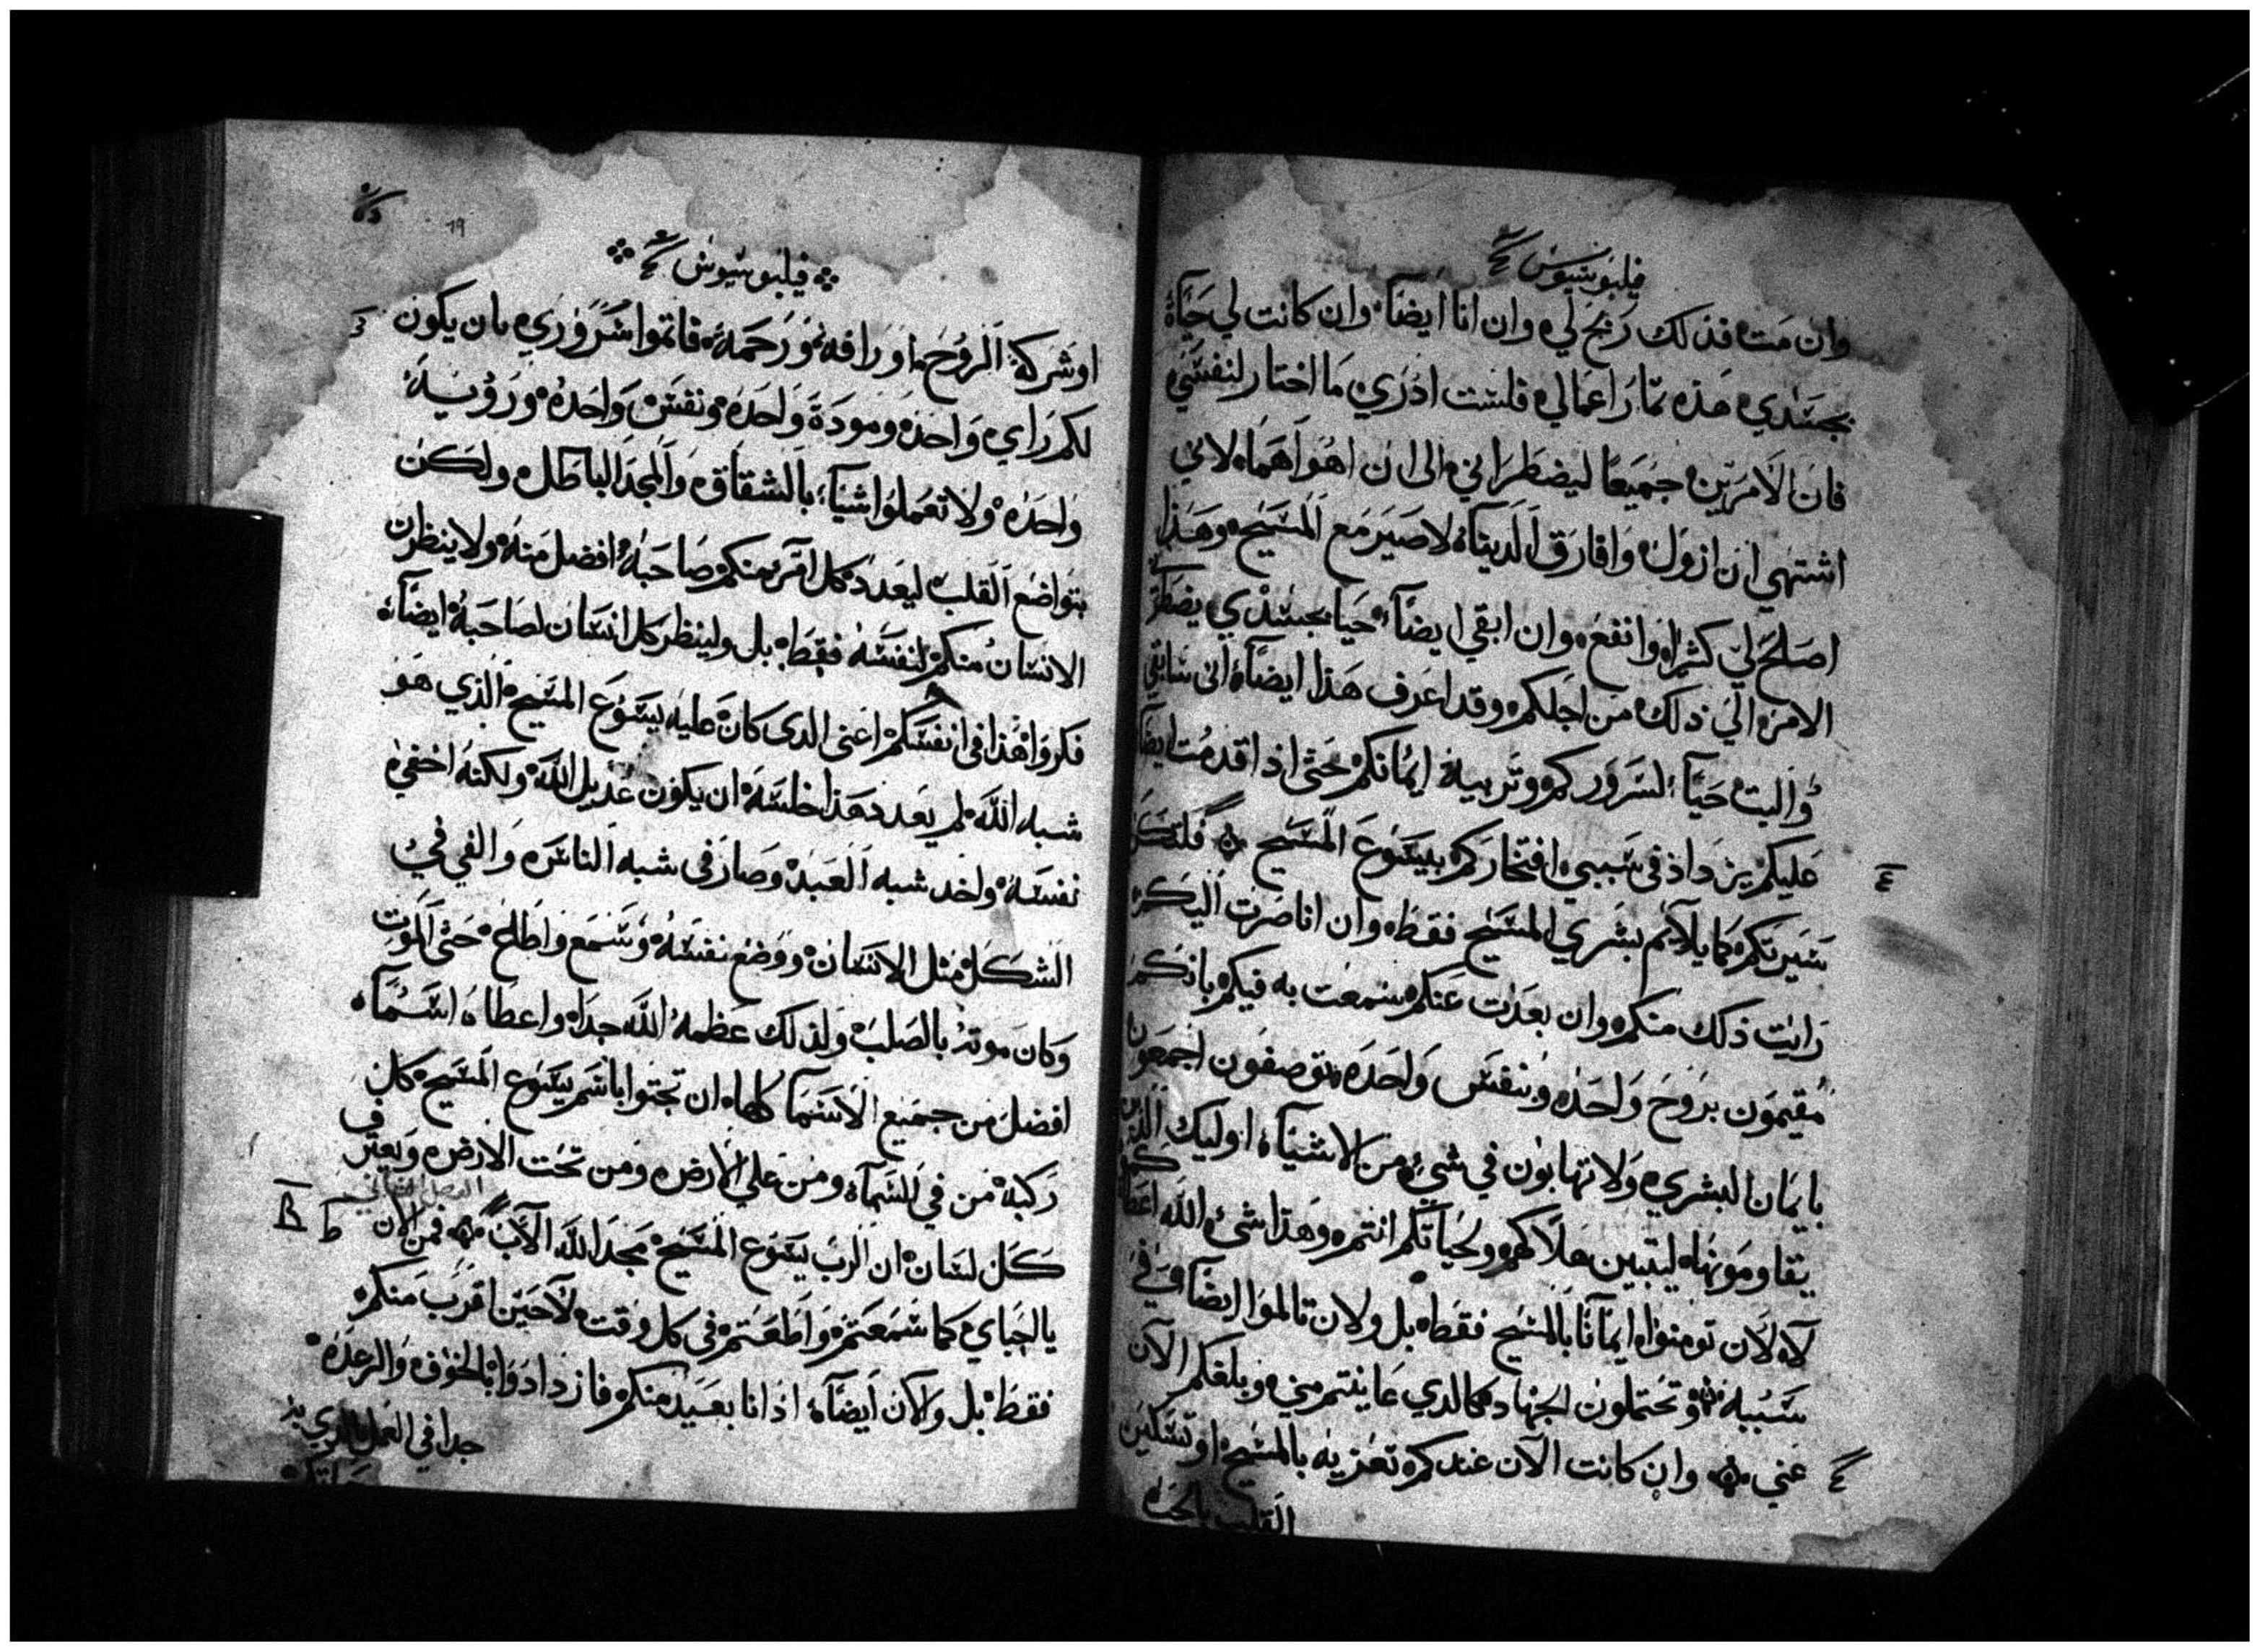 فيلبوسيوس
وان مت فذلك ربح لي وان انا ايضاً وان كانت لي حياة
بجسدي هذه ثمار اعمالي فلست ادري ما اختار لنفسي
فان الامرين جميعاً ليضطراني الى ان اهواهما لاني
اشتهي ان ازول وافارق الدنيا لاصير مع المسيح وهذا
اصلح لي كثيرا وانفع وان ابقي ايضاً حيا بجسدي يضطر
الامر الي ذلك من اجلكم وقد اعرف هذا ايضاً اني سابقي
والبث حياً لسروركم وتربية ايمانكم حتى اذا قدمت ايضا
عليكم يزداد في سببي افتخاركم بيسوع المسيح فلتكن
سيرتكم كما يلايم بشري المسيح فقط وان انا صرت اليكم
رايت ذلك منكم وان بعدت عنكم سمعت به فيكم بانكم
مقيمون بروح واحده وبنفس واحده توصفون اجمعون
بايمان البشري ولا تهابون في شيء من الاشياء اوليك الذين
يقاومونا ليتبين هلاكهم ولحياتكم انتم وهذا شيء الله اعطاكم
لا لان تومنوا ايماناً بالمسيح فقط بل ولان تالموا ايضا في
سببه وتحتملون الجهاد كالذي عاينتم مني وبلغكم الان
عني وان كانت الآن عندكم تعزيه بالمسيح او تسكين
القلب بالحب
فيلبوسيوس
19
او شركة الروح او رافه ورحمة فاتموا سروري بان يكون
لكم راي واحد ومودة واحده ونفس واحده وروية
واحده ولا تعملوا شيا بالشقاق والمجد الباطل ولكن
بتواضع القلب ليعدد كل امر منكم صاحبه افضل منه ولا ينظرن
الانسان منكم لنفسه فقط بل ولينظر كل انسان لصاحبه ايضاً
فكروا هذا في انفسكم اعني الذي كان عليه يسوع المسيح الذي هو
شبه الله لم يعدد هذا خلسة ان يكون عديل الله ولكنه اخفي
نفسه واخد شبه العبد وصار في شبه الناس والفي في
الشكل مثل الانسان ووضع نفسه وسمع واطاع حتى الموت
وكان موته بالصلب ولذلك عظمه الله جدا واعطاه اسماً
افضل من جميع الاسما كلها ان تجثوا باسم يسوع المسيح كل
ركبة من في السماء ومن علي الارض ومن تحت الارض ويعترف
الفصل الثاني
كل لسان ان الرب يسوع المسيح مجد الله الآب فمن الان
B
يا احباي كما سمعتم واطعتم في كل وقت لا حين اقرب منكم
فقط بل والآن ايضاً اذ انا بعيد منكم فازدادوا بالخوف والرعدة
جدا في العمل الذي به
حياتكم